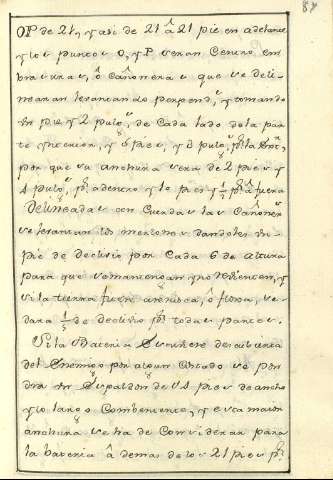 87
OP de 21, y asi de 21 â 21 pies en adelante
y los puntos O, y P seran Centro em
brasuras, ô Cañoneras que se deli
nearan levantando perpend.s y tomando
Un pie y 2 pulg.s de Cada lado de la par
te Ynterior, y 6 pies, y 8 pulg.s p.r la Ext.r
por que su anchura sera de 2 pies y
4 pulg.s p.r adentro y 13 pies y 1/3 p.r â fuera
Delineadas con Cuerdas las Cañoner.s
se levantan los merlones dandoles Un
pie de declivio por Cada 6 de altura
para que se mantengan y no rebienten, y
si la tierra fuere arenisca, ô floxa, se
dara 1/5 de declivio p.r todas partes.
Si la Bateria Estubiere descubierta
del Enemigo por algun Costado se pon
dra Un Espaldon de 15 pies de ancho
y lo largo Combeniente, y esta misma
anchura se ha de Considerar para
la bateria â demas de los 21 pies p.r